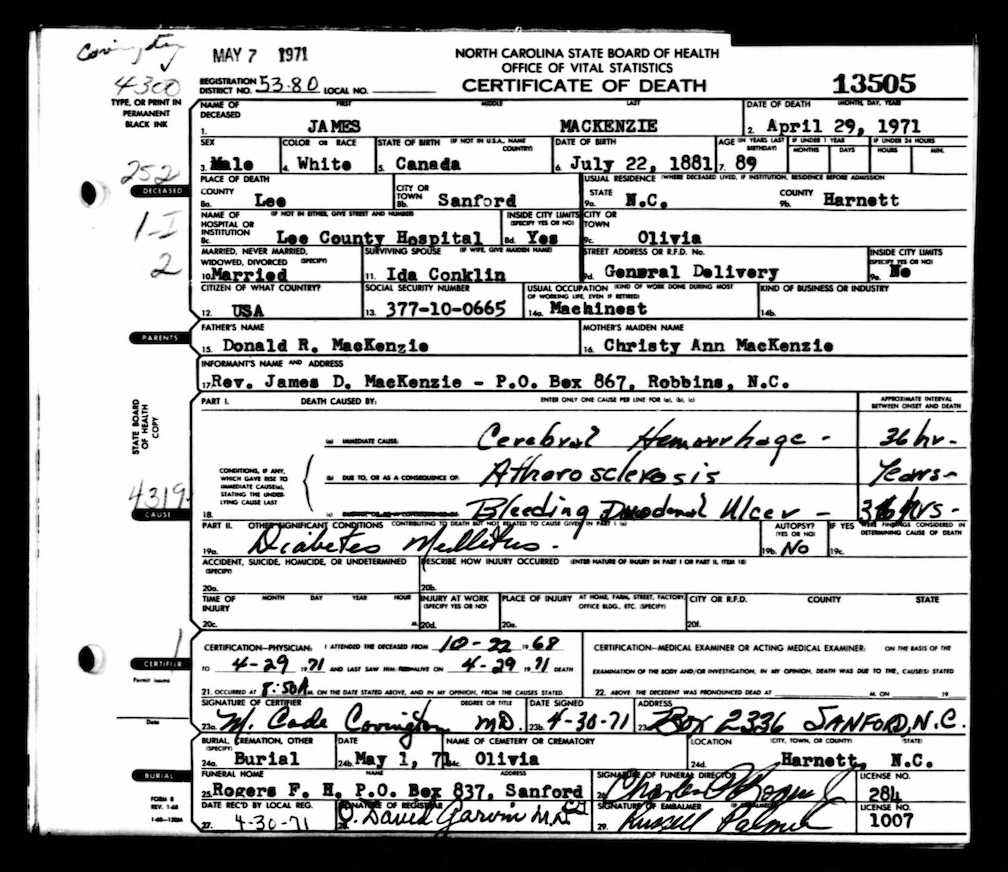 MAY 7 1971
NORTH CAROLINA STATE BOARD OF HEALTH
OFFICE OF VITAL STATISTICS
4300
REGISTRATION DISTRICT NO. 53-80 LOCAL NO.
CERTIFICATE OF DEATH
13505
TYPE, OR PRINT IN
PERMANENT
BLACK INK
NAME OF DECEASED FIRST MIDDLE LAST DATE OF DEATH (MONTH, DAY, YEAR)
1. JAMES MACKENZIE 2. April 29, 1971
SEX COLOR OR RACE STATE OF BIRTH (IF NOT IN U.S.A., NAME COUNTRY) DATE OF BIRTH AGE (IN YEARS LAST BIRTHDAY) IF UNDER 1 YEAR MONTHS DAYS IF UNDER 24 HOURS HOURS MIN.
3. Male 4. White 5. Canada 6. July 22, 1881 7. 89
252
DECEASED
PLACE OF DEATH USUAL RESIDENCE (WHERE DECEASED LIVED, IF INSTITUTION, RESIDENCE BEFORE ADMISSION
COUNTY CITY OR TOWN STATE COUNTY
8a. Lee 8b. Sanford 9a. N.C. 9b. Harnett
1-I
2
NAME OF HOSPITAL OR INSTITUTION (IF NOT IN EITHER, GIVE STREET AND NUMBER) INSIDE CITY LIMITS (SPECIFY YES OR NO) CITY OR TOWN
8c. Lee County Hospital 8d. Yes 9c. Olivia
MARRIED, NEVER MARRIED, WIDOWED, DIVORCED (SPECIFY) SURVIVING SPOUSE (IF WIFE, GIVE MAIDEN NAME) STREET ADDRESS OR R.F.D. No. INSIDE CITY LIMITS (SPECIFY YES OR NO)
10. Married 11. Ida Conklin 9d. General Delivery 9e. No
CITIZEN OF WHAT COUNTRY? SOCIAL SECURITY NUMBER USUAL OCCUPATION (KIND OF WORK DONE DURING MOST OF WORKING LIFE, EVEN IF RETIRED) KIND OF BUSINESS OR INDUSTRY
12. USA 13. 377-10-0665 14a. Machinest 14b.
PARENTS
FATHER'S NAME MOTHER'S MAIDEN NAME
15. Donald R. MacKenzie 16. Christy Ann MacKenzie
INFORMANT'S NAME AND ADDRESS
17. Rev. James D. MacKenzie - P.O. Box 867, Robbins, N.C.
STATE BOARD
OF HEALTH
COPY
PART I. DEATH CAUSED BY: ENTER ONLY ONE CAUSE PER LINE FOR (a), (b), (c) APPROXIMATE INTERVAL BETWEEN ONSET AND DEATH
(a) IMMEDIATE CAUSE Cerebral Hemorrhage - 36 hr-
CONDITIONS, IF ANY,
WHICH GAVE RISE TO
IMMEDIATE CAUSE(a),
STATING THE UNDER-
LYING CAUSE LAST
(b) DUE TO, OR AS A CONSEQUENCE OF: Atherosclerosis Years-
4319
CAUSE
18. (c) Bleeding Duodenal Ulcer - hrs-
PART II. OTHER SIGNIFICANT CONDITIONS CONTRIBUTING TO DEATH BUT NOT RELATED TO CAUSE GIVEN IN PART I (a) AUTOPSY? (YES OR NO) IF YES WERE FINDINGS CONSIDERED IN DETERMINING CAUSE OF DEATH
19a. Diabetes Mellitus - 19b. No 19c.
ACCIDENT, SUICIDE, HOMICIDE, OR UNDETERMINED (SPECIFY) DESCRIBE HOW INJURY OCCURRED (ENTER NATURE OF INJURY IN PART I OR PART II, ITEM 18)
20a. 20b.
TIME OF INJURY MONTH DAY YEAR HOUR INJURY AT WORK (SPECIFY YES OR NO) PLACE OF INJURY AT HOME, FARM, STREET, FACTORY, OFFICE BLDG., ETC. (SPECIFY) CITY OR R.F.D. COUNTY STATE
20c. M. 20d. 20e. 20f.
1
CERTIFIER
Permit issued
Date
CERTIFICATION-PHYSICIAN: I ATTENDED THE DECEASED FROM 10-22 1968
TO 4-29 1971 AND LAST SAW HIM ALIVE ON 4-29 1971 DEATH
21. OCCURRED AT 8:50A M. ON THE DATE STATED ABOVE, AND IN MY OPINION, FROM THE CAUSES STATED.
CERTIFICATION-MEDICAL EXAMINER OR ACTING MEDICAL EXAMINER: ON THE BASIS OF THE
EXAMINATION OF THE BODY AND/OR INVESTIGATION, IN MY OPINION, DEATH WAS DUE TO THE, CAUSE(S) STATED
22. ABOVE. THE DECEDENT WAS PRONOUNCED DEAD AT M. ON 19
SIGNATURE OF CERTIFIER DEGREE OR TITLE DATE SIGNED ADDRESS
23a. M. Cade Covington MD. 23b. 4-30-71 23c. Box 2336 SANFORD, N.C.
BURIAL, CREMATION, OTHER (SPECIFY) DATE NAME OF CEMETERY OR CREMATORY LOCATION (CITY, TOWN, OR COUNTY) (STATE)
24a. Burial 24b. May 1, 71 24c. Olivia 24d. Harnett, N.C.
BURIAL
FORM 8
REV. 1-68
FUNERAL HOME NAME ADDRESS SIGNATURE OF FUNERAL DIRECTOR LICENSE NO.
25. Rogers F. H. P.O. Box 837, Sanford 26. 284
DATE REC'D BY LOCAL REG. SIGNATURE OF REGISTRAR SIGNATURE OF EMBALMER LICENSE NO.
27. 4-30-71 28. David Garvin M.D. 29. Russell Palmer 1007